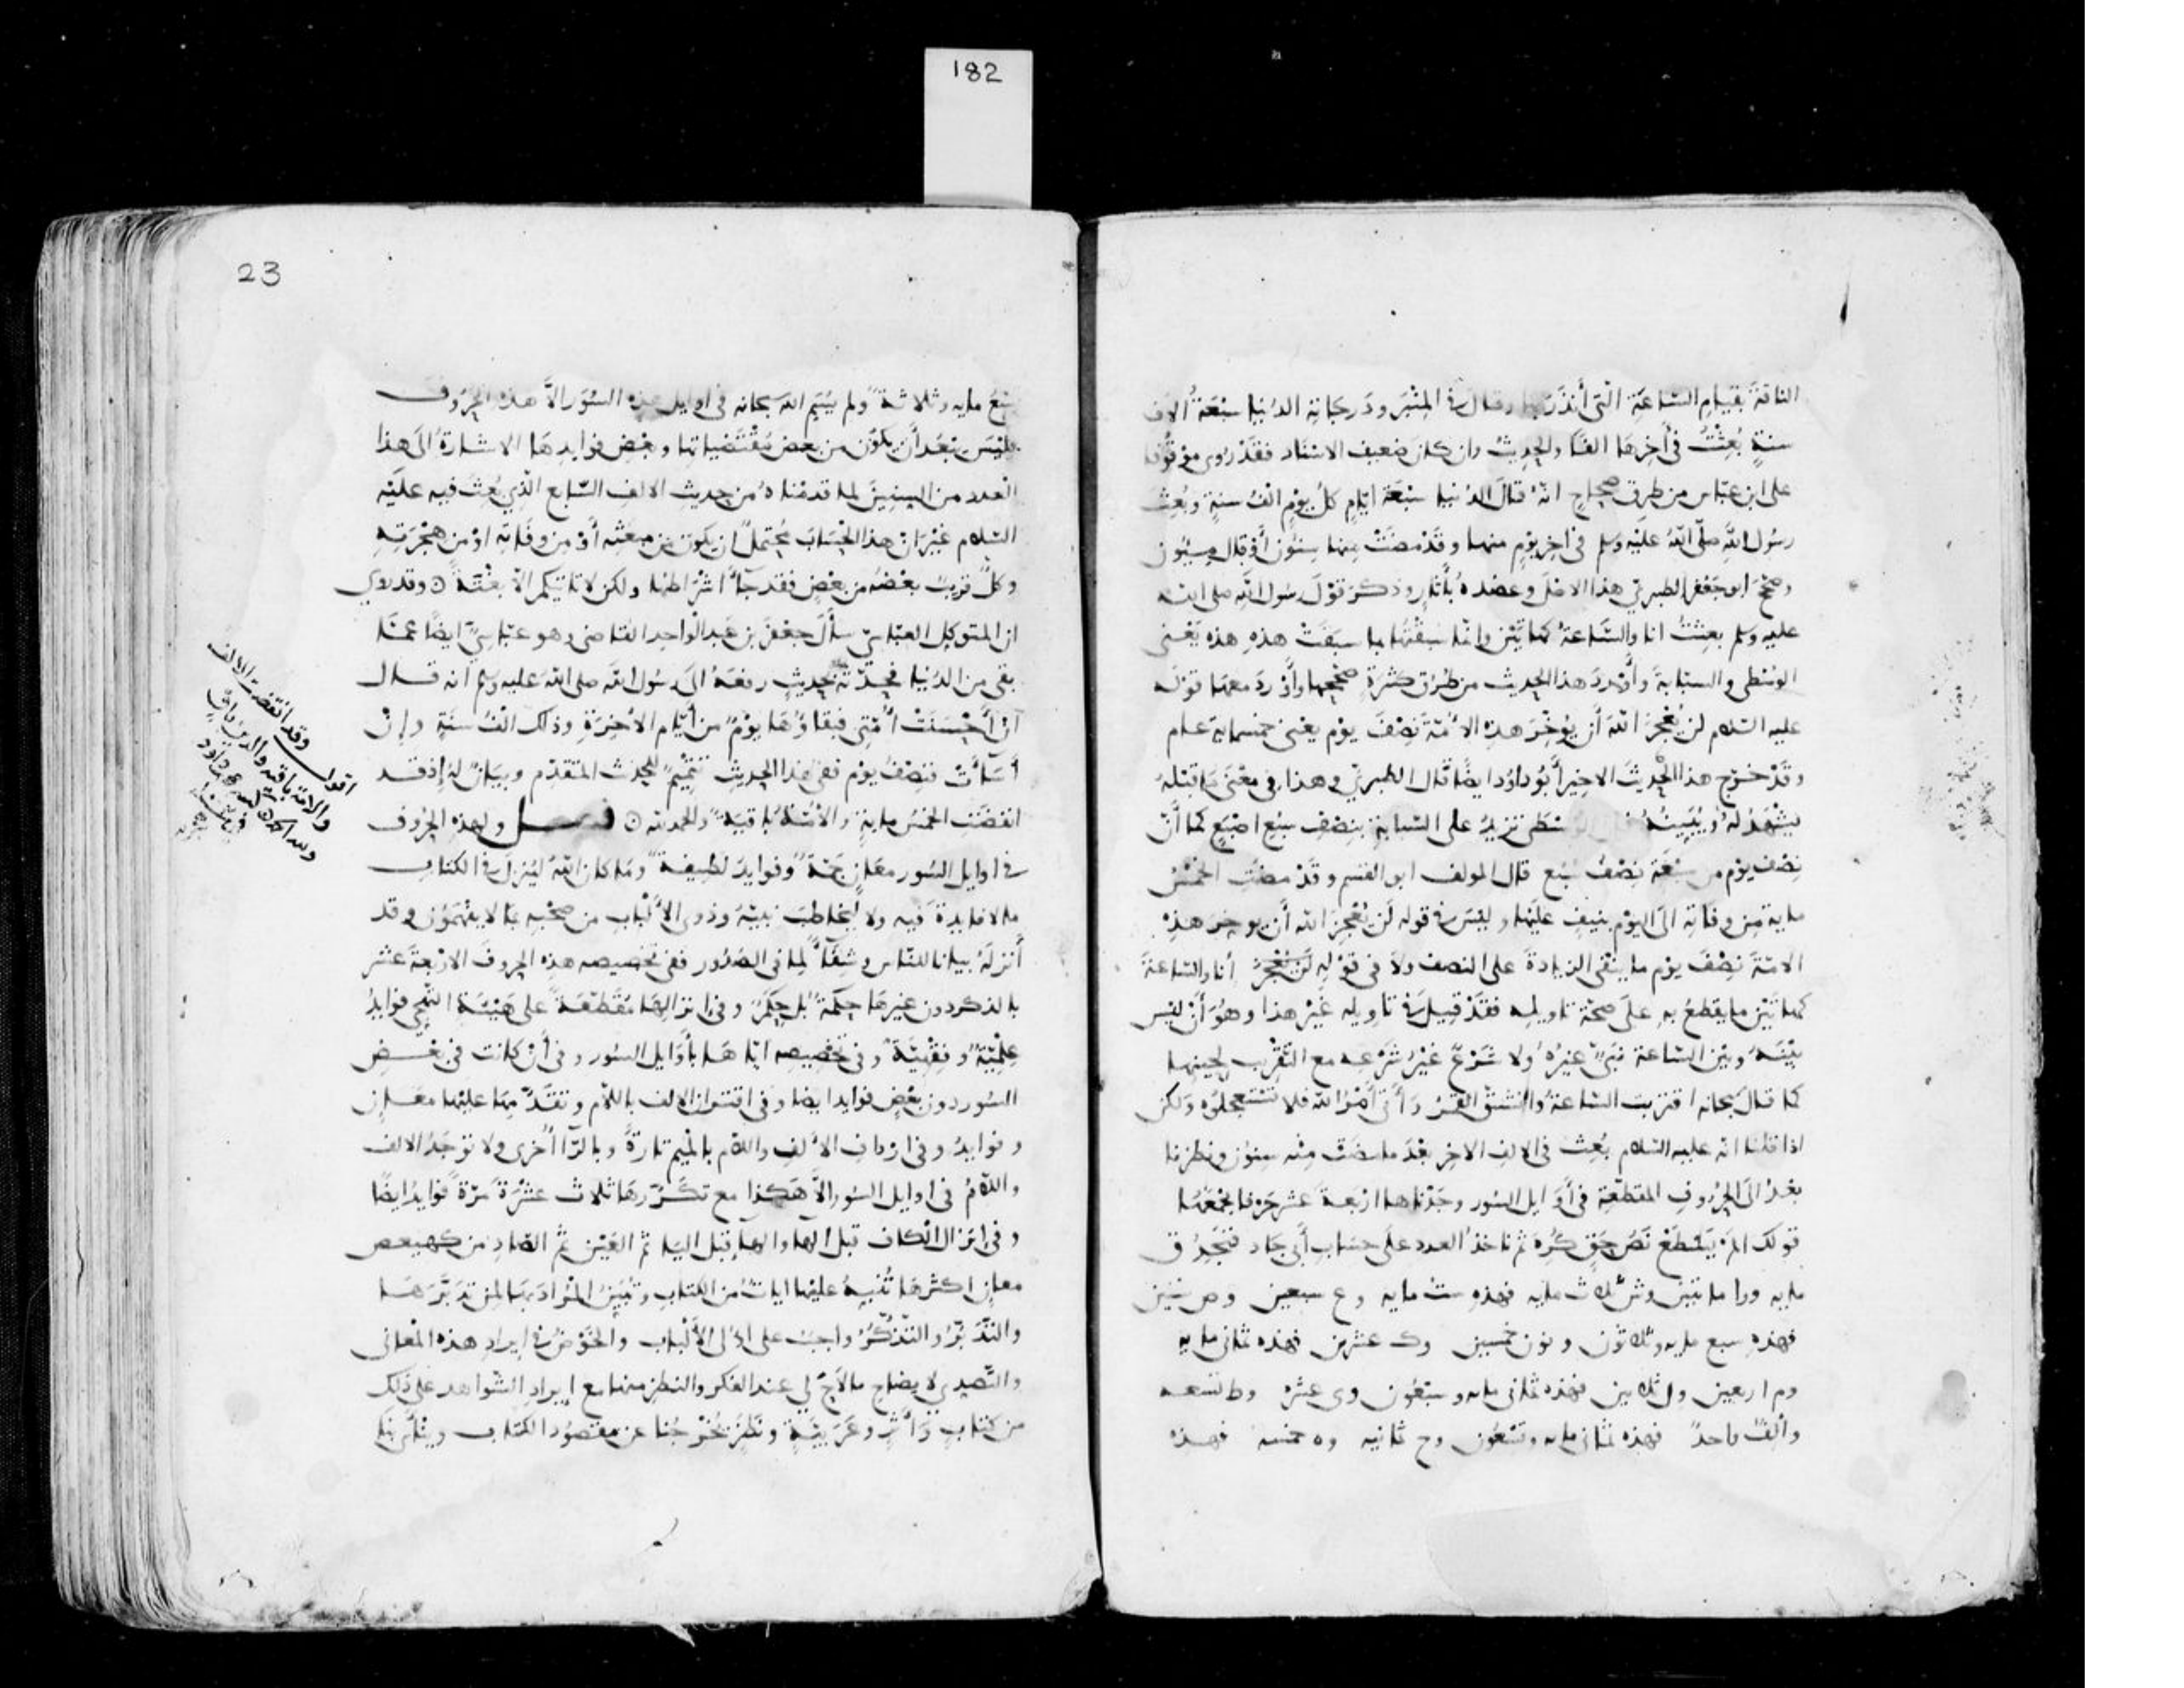 182
الناقة بقيام الساعة التي أنذر بها وقال في المنبر ودرجاته الدنيا سبعة آلاف
سنةٍ بُعِثْتُ في آخرها الفًا والحديثُ وان كان ضعيف الاسناد فقدْ رُوى موقُوفا
على ابن عبّاس من طرق صحاح انّه قال الدُنيا سبْعَة ايّام كلُّ يوْمٍ الفُ سنةٍ وبُعِثَ
رسُول الله صلّى اللهُ عليْه وسلم في آخر يوْم منها وقَدْ مضَتْ منها سِنُون أوْ قال مِيئون
وصحّحَ ابو جعْفر الطبريّ هذا الاصْل وعضده بآثارٍ وذكر قوْلَ رسُول الله صلى الله
عليه وسلم بعِثتُ انا والسَّاعة كهاتيْن وانّما سبقْتُها بما سبَقَتْ هذه هذه يَعْنى
الوُسْطى والسبّابة وأوْردَ هذا الحديث من طُرق كثرةٍ صحّحها وأوْردَ معها قوْله
عليه السّلام لن يُعْجِزَ اللهَ أنْ يُؤخّرَ هذه الأمّة نِصْفَ يوْم يعْنى خمسماية عام
وقدْ خرّج هذا الحديثَ الاخيرَ أبُو داوُد ايضًا قال الطبريّ وهذا في معْنى ما قبْلهُ
يشْهدُ لهُ ويُبَيِّنُهُ فان الوسْطى تزيدُ على السّبابة بنِصْفِ سبُع اصْبَعٍ كما أنّ
نِصْف يوْم من سبْعَة نِصْفُ سُبع قال المولف ابو القسم وقَدْ مضَتِ الخمْسُ
ماية من وفاته الى اليوْم بنيفٍ عليْها وليْسَ في قوله لن يُعْجِزَ الله أن يوخرَ هذِهِ
الامّة نِصْفَ يوْم ما ينْفى الزيادة على النصف ولا في قوْلهِ لن يُعْجز أنا والسّاعة
كهاتيْن ما يقطعُ به على صحّة تاويله فقَدْ قيل في تاويله غيْر هذا وهُوَ أنْ ليْس
بيْنهُ وبيْن السّاعة نبيّ غيرُه ولا شَرْع غيْرُ شَرْعه مع التّقْريب لحينها
كما قال سبحانه اقتربت السّاعة وانشقّ القمرُ وأتى أمْر الله فلا تسْتعجلوُه ولكن
اذا قلنا انّه عليه السّلام بُعث في الالف الاخر بعْدَ ما مضَتْ منْه سِنُون ونظرنا
بعْدُ الى الحُروف المقطّعة في أوايل السّور وجدْناها ارْبعة عشر حرْفا يجْمعُها
قولك الم يَسْطع نصُّ حَقٍّ كُرِه ثم ناخذُ العدد على حساب أبى جاد فنجدُ ق
مايه ورا ماتيْن وش ثلاث مايه فهذه ستُ مايه وع سبعين وص ستّين
فهذه سبع مايه وثلاثون ونون خمسين وك عشرين فهذه ثمانى مايه
وم اربعين ول ثلاثين فهذه ثمانى مايه وسبعُون وى عشره وط تسعه
وألفٌ واحدٌ فهذه ثمانى مايه وتسْعُون وح ثمانيه وه خمسه فهذه
23
تسْعُ مايه وثلاثةٌ ولم يُسمّ الله سبحانه في اوايل هذه السّوَر الاّ هذه الحُرُوفَ
فليْسَ يبْعُد أن يكون من بعض مُقْتضياتها وبعْض فوايدها الاشارةُ الى هذا
العدد من السنين لما قدمْناهُ من حديث الالف السّابع الّذي بُعِث فيه عليْه
السّلام غيْر انّ هذا الحِسَاب يُحْتملُ ان يكون من مبعَثه أوْ من وفاته اوْ من هِجْرته
وكلٌّ قريبٌ بعْضُه من بعْضٍ فقد جآءَ اشْراطها ولكن لا تاتيكم الاّ بغْتةً ۞ وقد روي
ان المتوكل العبّاسيّ سأل جعْفرَ بن عبد الواحد القاضى وهو عبّاسيٌّ ايضًا عمّا
بقى من الدُنيا فحدّثهُ بحديثٍ رفعهُ الى رسُول الله صلى الله عليه وسلم انه قال
انْ أحْسَنَتْ أُمّتى فبقاؤها يوْمٌ من أيّام الآخرة وذلك الْفُ سنَةٍ وإنْ
أسَآءَتْ فنِصْفُ يوْم ففى هذا الحديث تتْميمٌ للحديث المتقدّم وبيانٌ لهُ إذ قد
انقضَت الخمْسُ مايةٍ والأمّةُ باقيةٌ والحمد لله ۞ فصل ولهذه الحُروف
في اوايل السّور معَانٍ جمّةٌ وفوايدُ لطيفة وما كان اللهُ ليُنزلَ في الكتاب
ما لا فايدة فيه ولا ليُخاطبَ نبيّهُ وذوى الألْباب من صحْبه بما لا يفْهمُون وقد
أنزلهُ بيانا للنّاس وشِفآءً لما في الصّدُور ففى تخصيصه هذه الحروف الارْبعة عشر
بالذكر دون غيرها حِكْمةٌ بل حِكَمٌ وفى انزالها مُقطّعةً على هَيْئة التّهجّى فوايدُ
عِلْميّةٌ وفِقْهيّةٌ وفى تخْصيصه ايّاها بأوَايل السّور وفى أنْ كانت في بعْض
السّور دون بعْضٍ فوايد ايضا وفى اقتران الالف باللام وتقدّمها عليْها معانٍ
وفوايدُ وفى ارْداف الالف واللام بالميم تارةً وبالرّا أخرى ولا توجَدُ الالف
واللامُ في اوايل السّور الاّ هكذا مع تكرّرها ثلاث عشْرَة مرّةً فوايدُ ايضًا
وفى انزال الكاف قبل الهآء والهآء قبل اليا ثم العيْن ثم الصّاد من كهيعص
معانٍ اكثرها تُنبِهُ عليْها اياتٌ من الكتاب وتُبيّنُ المُرادَ بها لمن تدبّرهَا
والتّدبّرُ والتّذكّرُ واجبٌ على اولى الألْباب والخوْضُ في إيراد هذه المعانى
والتّصدي لايضاح ما لاح لي عند الفكر والنظر منها مع إيراد الشّواهد على ذلك
من كتابٍ وأثرٍ وعربيّةٍ ونظرٍ يُخرجُنا عن مقصُود الكتاب وينْأى بنا
اقول وقد انقضت الالف
والامة باقيه والدين باقٍ
ولله الحمد